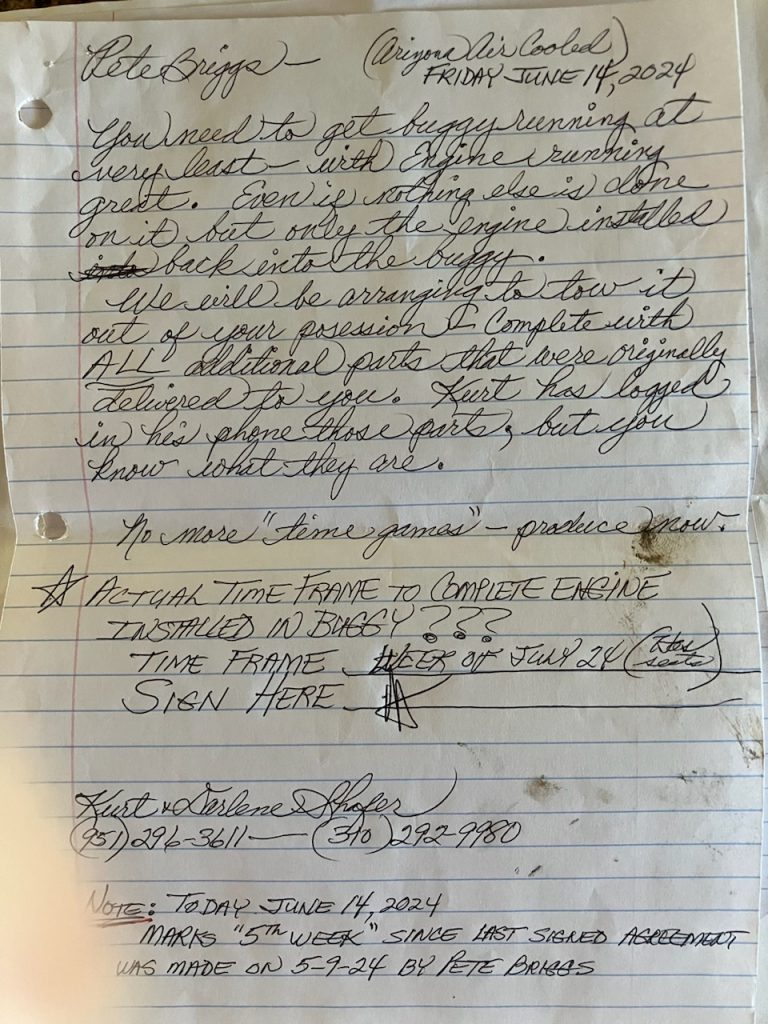 Pete Briggs — (Arizona Air Cooled)
FRIDAY JUNE 14, 2024
You need to get buggy running at
very least — with Engine running
great. Even if nothing else is done
on it but only the engine installed
back into the buggy.
We will be arranging to tow it
out of your posession & Complete with
ALL additional parts that were originally
delivered to you. Kurt has logged
in his phone those parts, but you
know what they are.
No more "time games" — produce now.
☆ ACTUAL TIME FRAME TO COMPLETE ENGINE
INSTALLED IN BUGGY ???
TIME FRAME WEEK OF JULY 24 (
SIGN HERE
Kurt & Darlene Shafer
(951) 296-3611 — (310) 292-9980
NOTE: TODAY JUNE 14, 2024
MARKS "5TH WEEK" SINCE LAST SIGNED AGREEMENT
WAS MADE ON 5-9-24 BY PETE BRIGGS